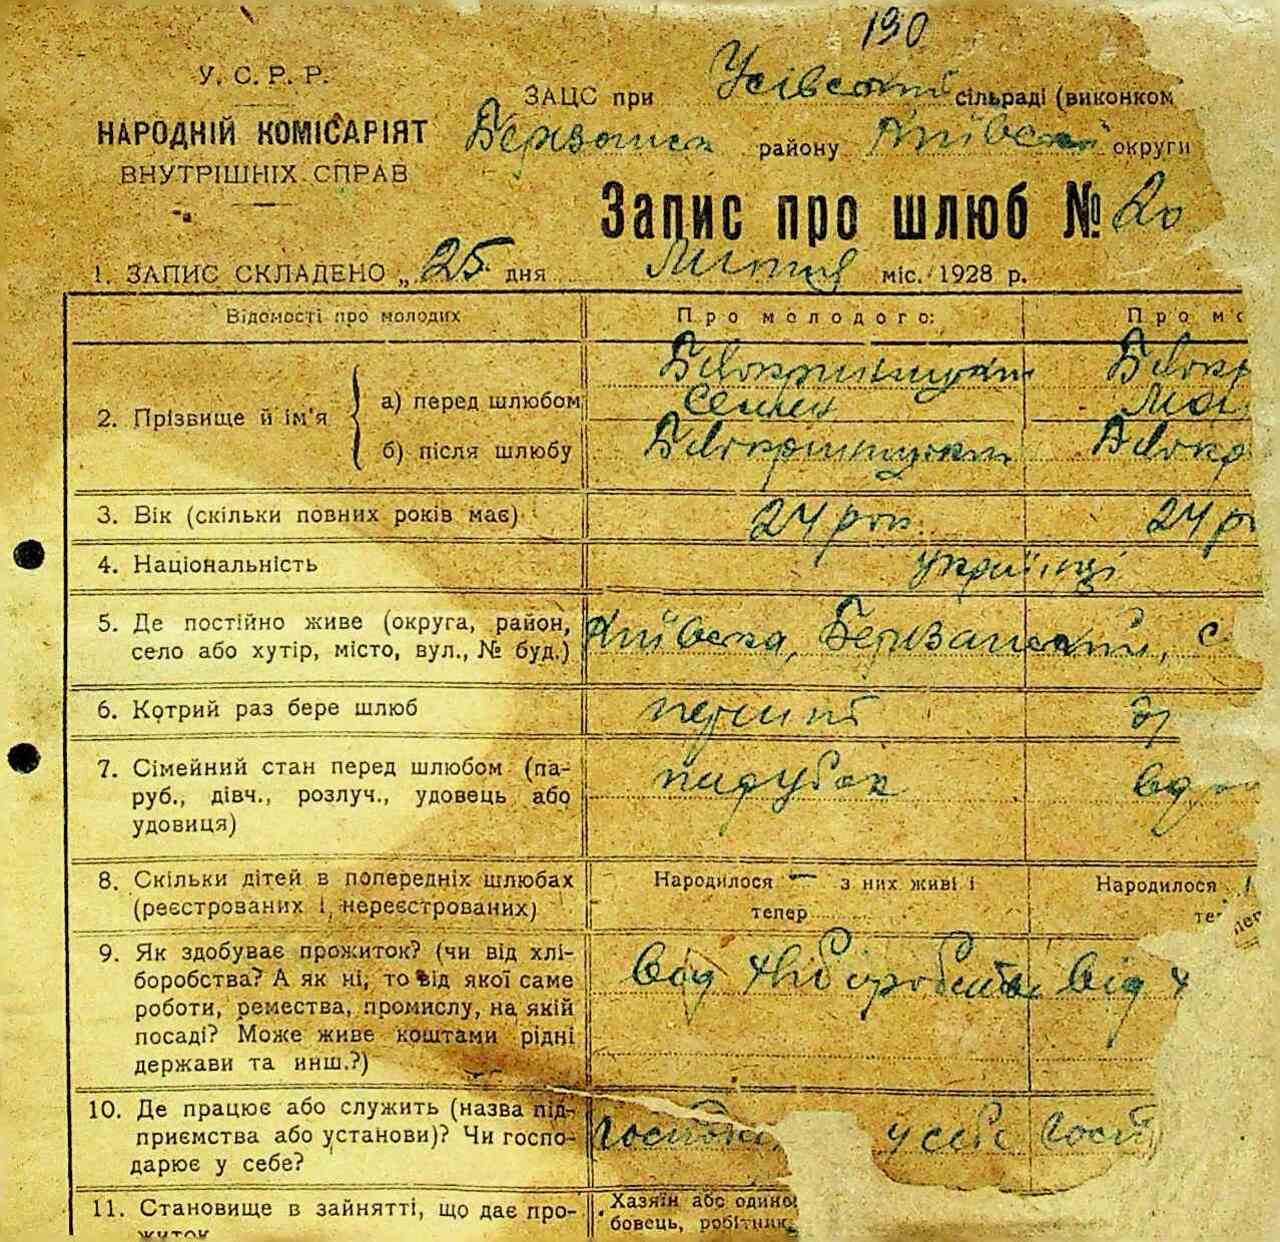 190
У. С. Р. Р.
ЗАЦС при Усівській сільраді (виконком
НАРОДНІЙ КОМІСАРІЯТ
Берзанськ району Київської округи
ВНУТРІШНІХ СПРАВ
Запис про шлюб № 20
1. ЗАПИС СКЛАДЕНО „ 25 дня Лютня міс. 1928 р.
Відомості про молодих
Про молодого:
Про м
2. Прізвище й ім'я
а) перед шлюбом
Семен
б) після шлюбу
3. Вік (скільки повних років має)
24 рок.
24 ро
4. Національність
українці
5. Де постійно живе (округа, район, село або хутір, місто, вул., № буд.)
Київська, Берзанський, с
6. Котрий раз бере шлюб
перший
др
7. Сімейний стан перед шлюбом (па-
руб., дівч., розлуч., удовець або
удовиця)
парубок
вдо
8. Скільки дітей в попередніх шлюбах
(реєстрованих і нереєстрованих)
Народилося — з них живі і
тепер
Народилося
те
9. Як здобуває прожиток? (чи від хлі-
боробства? А як ні, то від якої саме
роботи, ремества, промислу, на якій
посаді? Може живе коштами рідні
держави та инш.?)
від хліборобства
від х
10. Де працює або служить (назва під-
приємства або установи)? Чи госпо-
дарює у себе?
господа у себе
госп
11. Становище в зайнятті, що дає про-
житок
Хазяїн або одино
бовець, робітник,